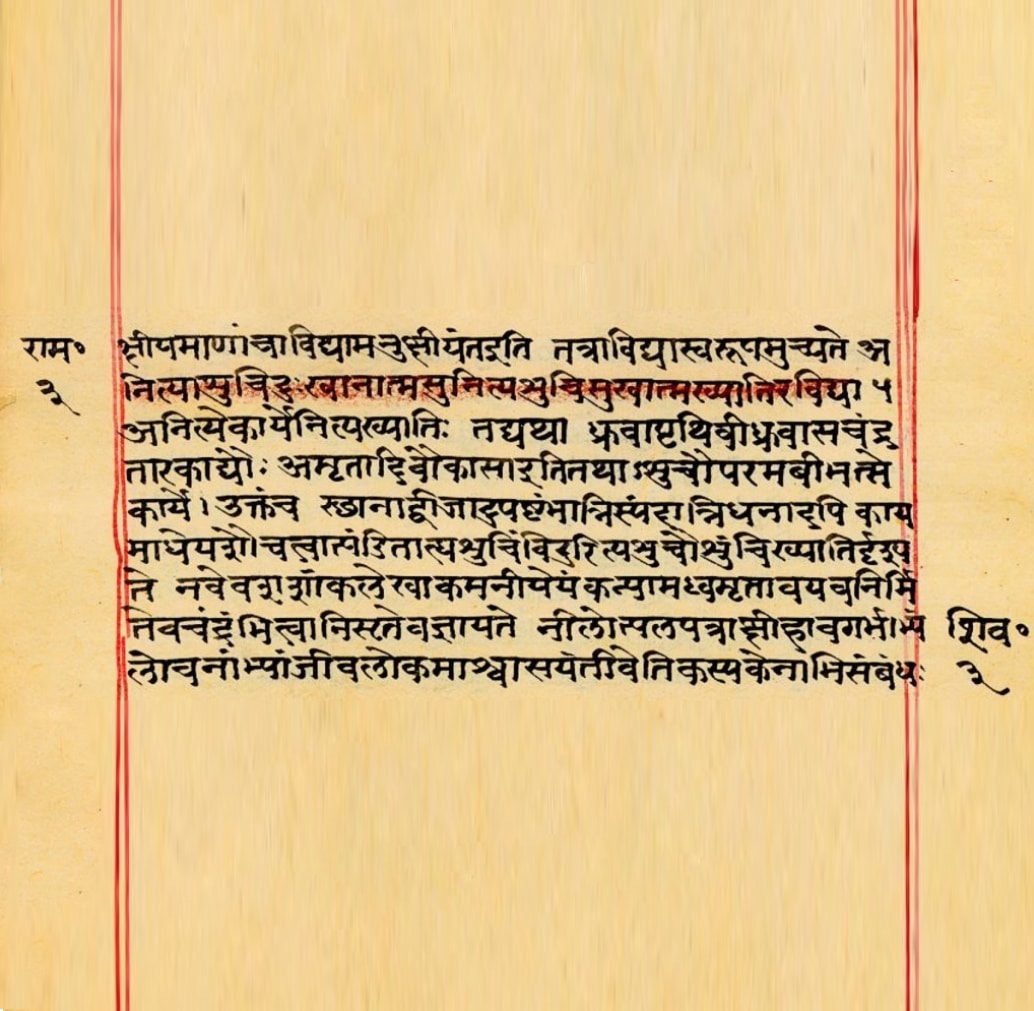 राम॰ क्षीयमाणांचाविद्यामनुक्षीयंतइति तत्राविद्यास्वरूपमुच्यते अ
३ नित्याशुचिदुःखानात्मसुनित्यशुचिसुखात्मख्यातिरविद्या ५
अनित्येकार्येनित्यख्यातिः तद्यथा ध्रुवापृथिवीध्रुवासचंद्र
तारकाद्यौः अमृतादिवौकासाइतितथाऽशुचौपरमबीभत्से
कार्ये। उक्तंच स्छानाद्बीजादुपष्टंभान्निस्पंदान्निधनादपि काय
माधेयशौचत्वात्पंडिताह्यशुचिंविदुरित्यशुचौशुचिख्यातिर्दृश्य
ते नवेवशशांकलेखाकमनीयेयंकन्यामध्वमृतावयवनिर्मि
तेवचंद्रंभित्वानिसृतेवज्ञायते नीलोत्पलपत्राक्षीहावगर्भाभ्यां शिव॰
लोचनाभ्यांजीवलोकमाश्वासयंतीवेतिकस्यकेनाभिसंबंधः ३